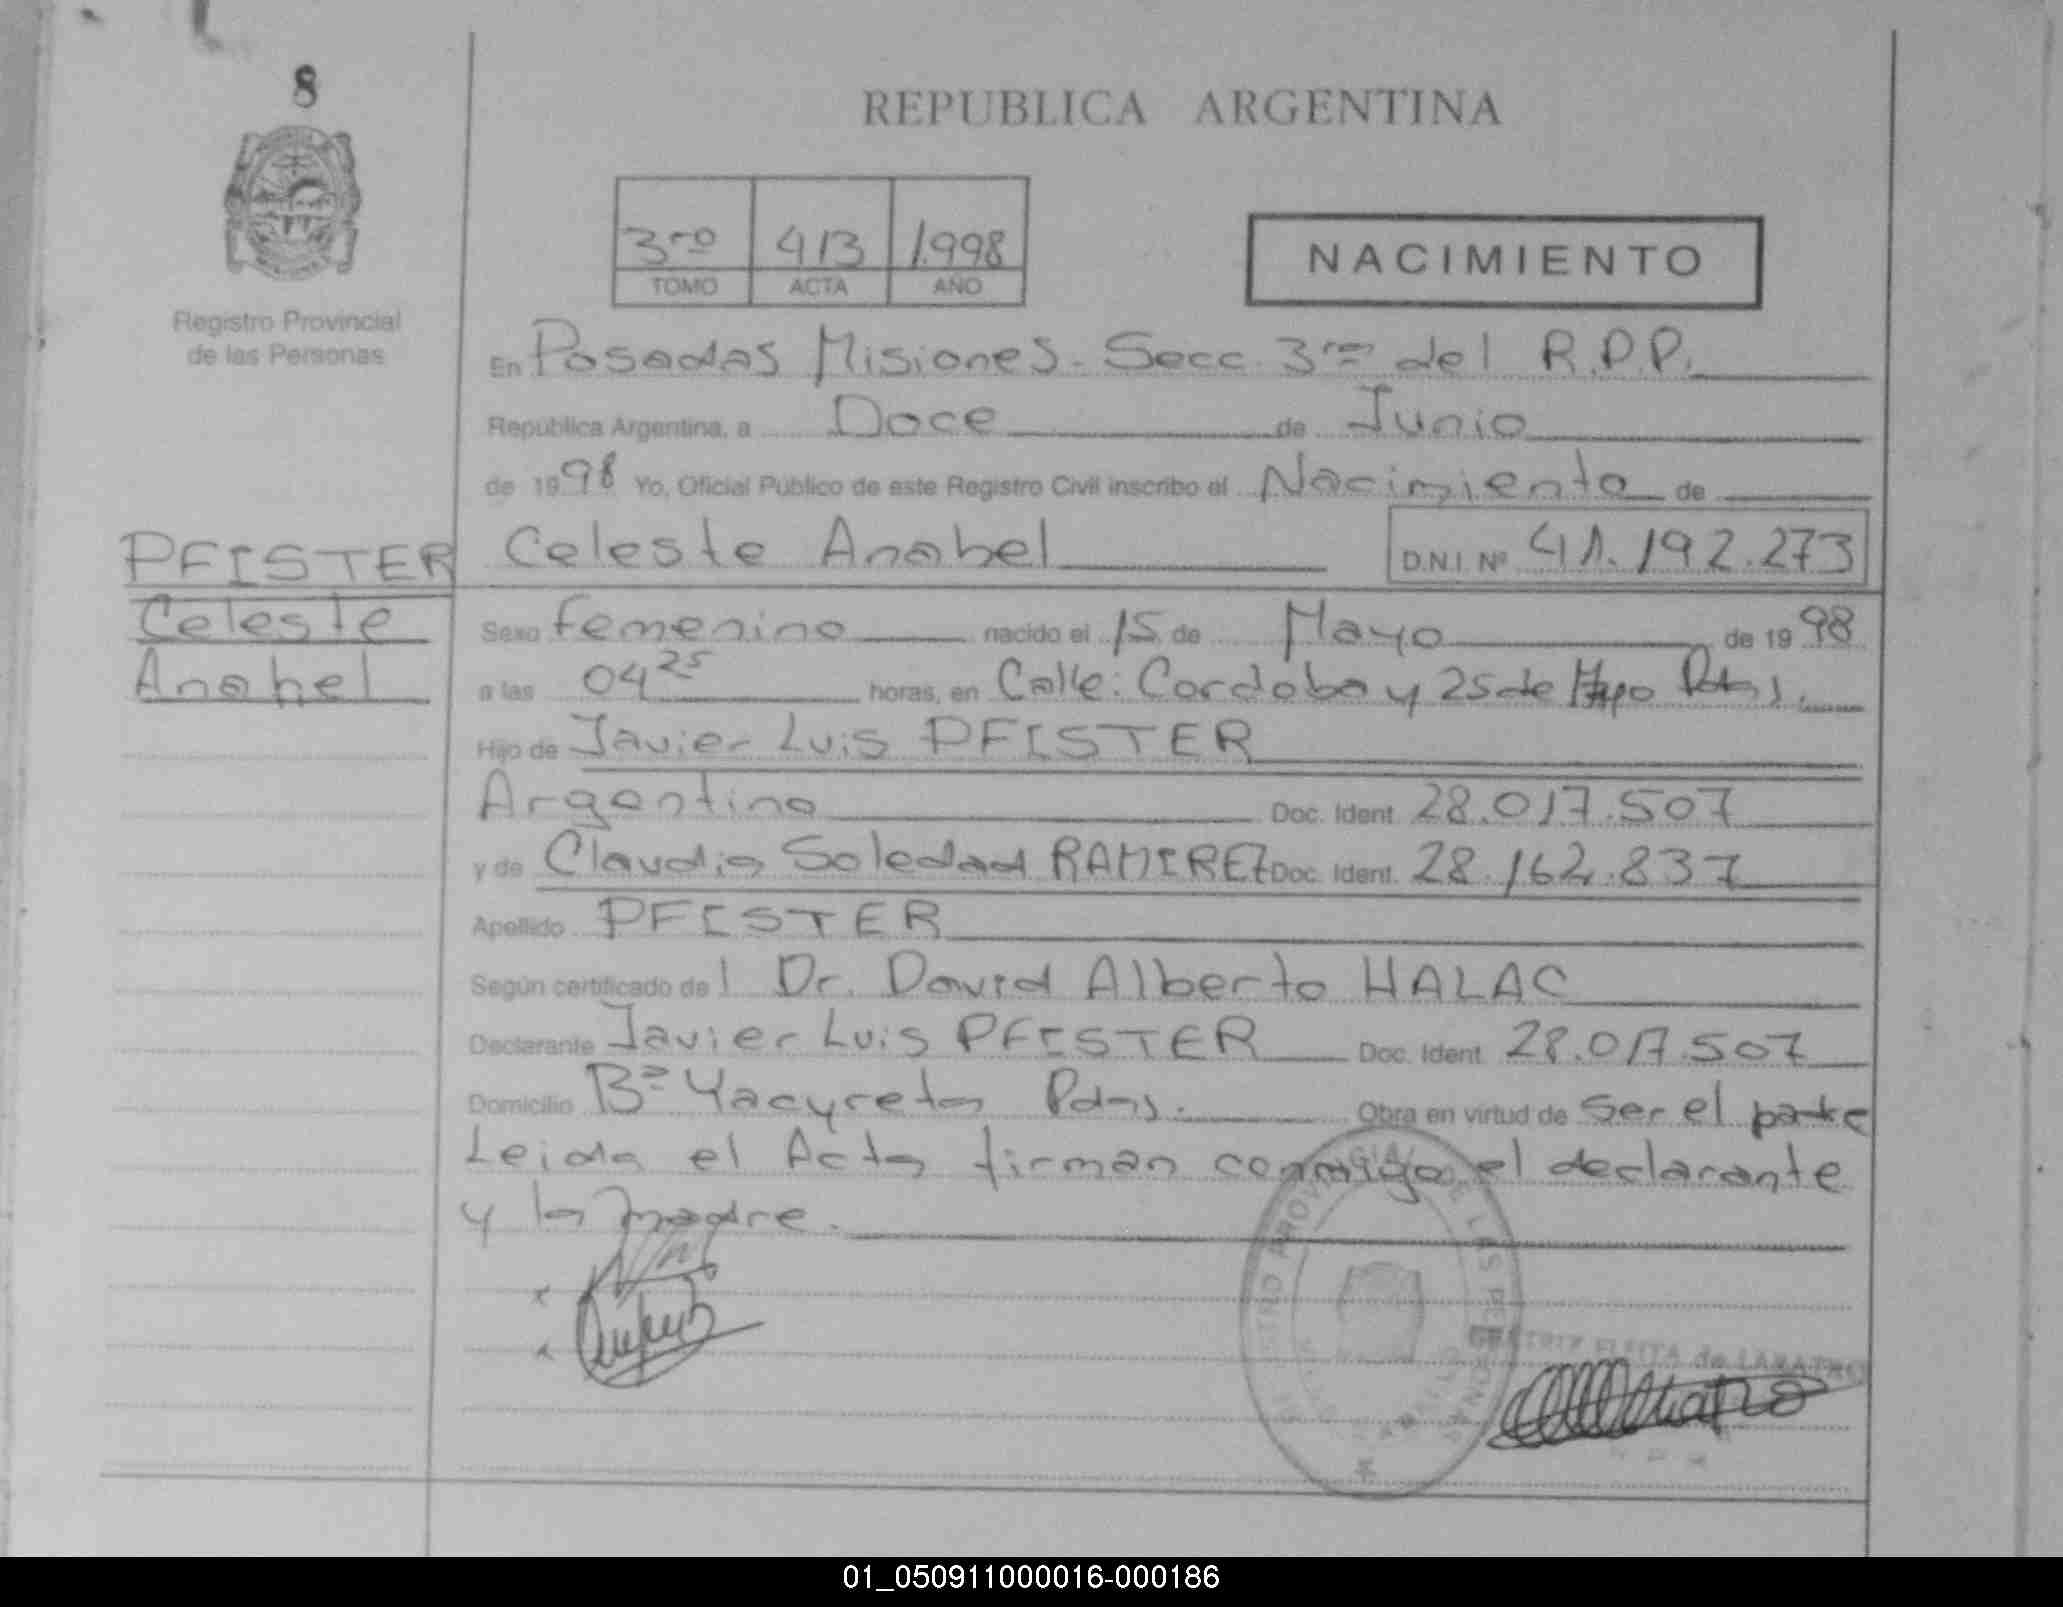 8
REPUBLICA ARGENTINA
3ro 413 1.998
TOMO ACTA AÑO
NACIMIENTO
Registro Provincial
de las Personas
En Posadas Misiones - Secc. 3ra del R.P.P.
República Argentina, a Doce de Junio
de 1998 Yo, Oficial Público de este Registro Civil inscribo el Nacimiento de
PFISTER Celeste Anabel D.N.I. Nº 41.192.273
Celeste
Anabel
Sexo femenino nacido el 15 de Mayo de 1998
a las 04 25 horas, en Calle: Cordoba y 25 de Mayo Pdas.
Hijo de Javier Luis PFISTER
Argentino Doc. Ident. 28.017.507
y de Claudia Soledad RAMIREZ Doc. Ident. 28.162.837
Apellido PFISTER
Según certificado del Dr. David Alberto HALAC
Declarante Javier Luis PFISTER Doc. Ident. 28.017.507
Domicilio Bº Yacyreta Pdas. Obra en virtud de ser el padre
Leida el Acta firman conmigo el declarante
y la madre.
x
x
REGISTRO PROVINCIAL DE LAS PERSONAS
01_050911000016-000186